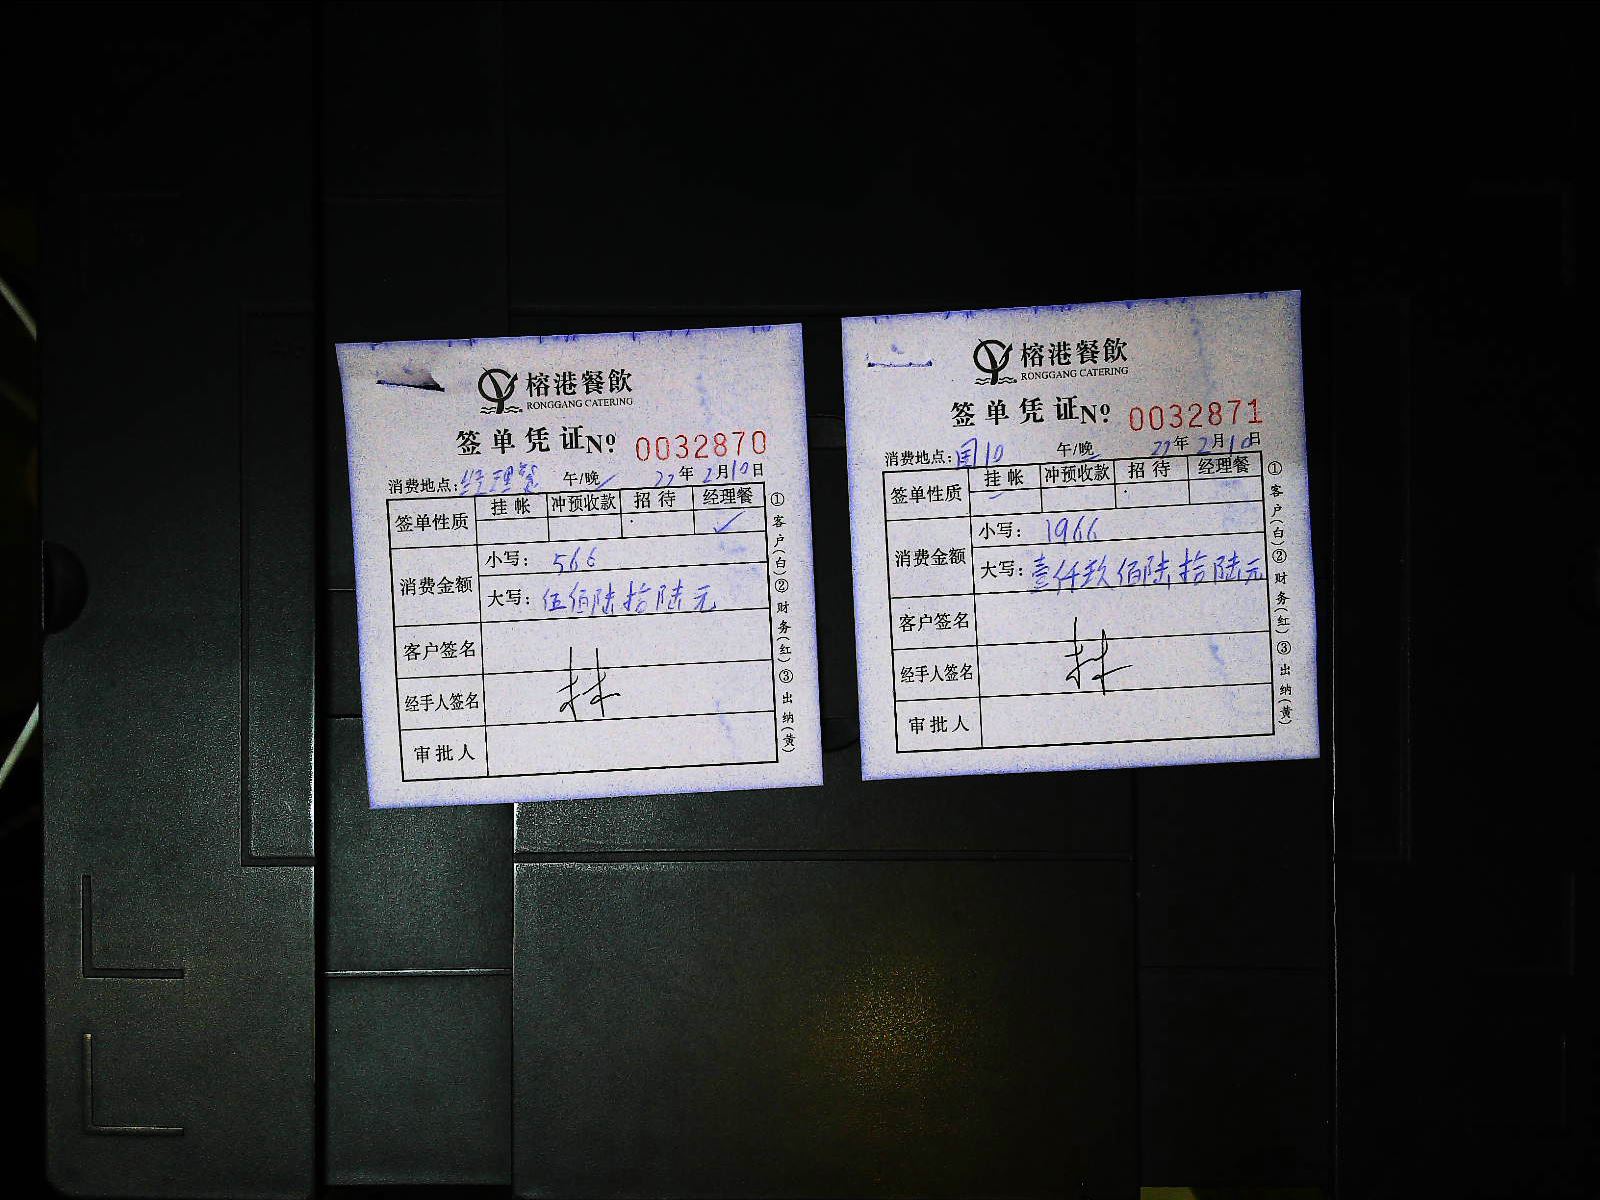 榕港餐飲
RONGGANG CATERING
签单凭证 Nº 0032870
消费地点: 经理餐 午/晚 22年2月10日
签单性质 挂帐 冲预收款 招待 经理餐
✓
消费金额
小写: 566
大写: 伍佰陆拾陆元
客户签名
经手人签名 林
审批人
①客户(白)②财务(红)③出纳(黄)
榕港餐飲
RONGGANG CATERING
签单凭证 Nº 0032871
消费地点: 国10 午/晚 22年2月10日
签单性质 挂帐 冲预收款 招待 经理餐
消费金额
小写: 1966
大写: 壹仟玖佰陆拾陆元
客户签名
经手人签名 林
审批人
①客户(白)②财务(红)③出纳(黄)